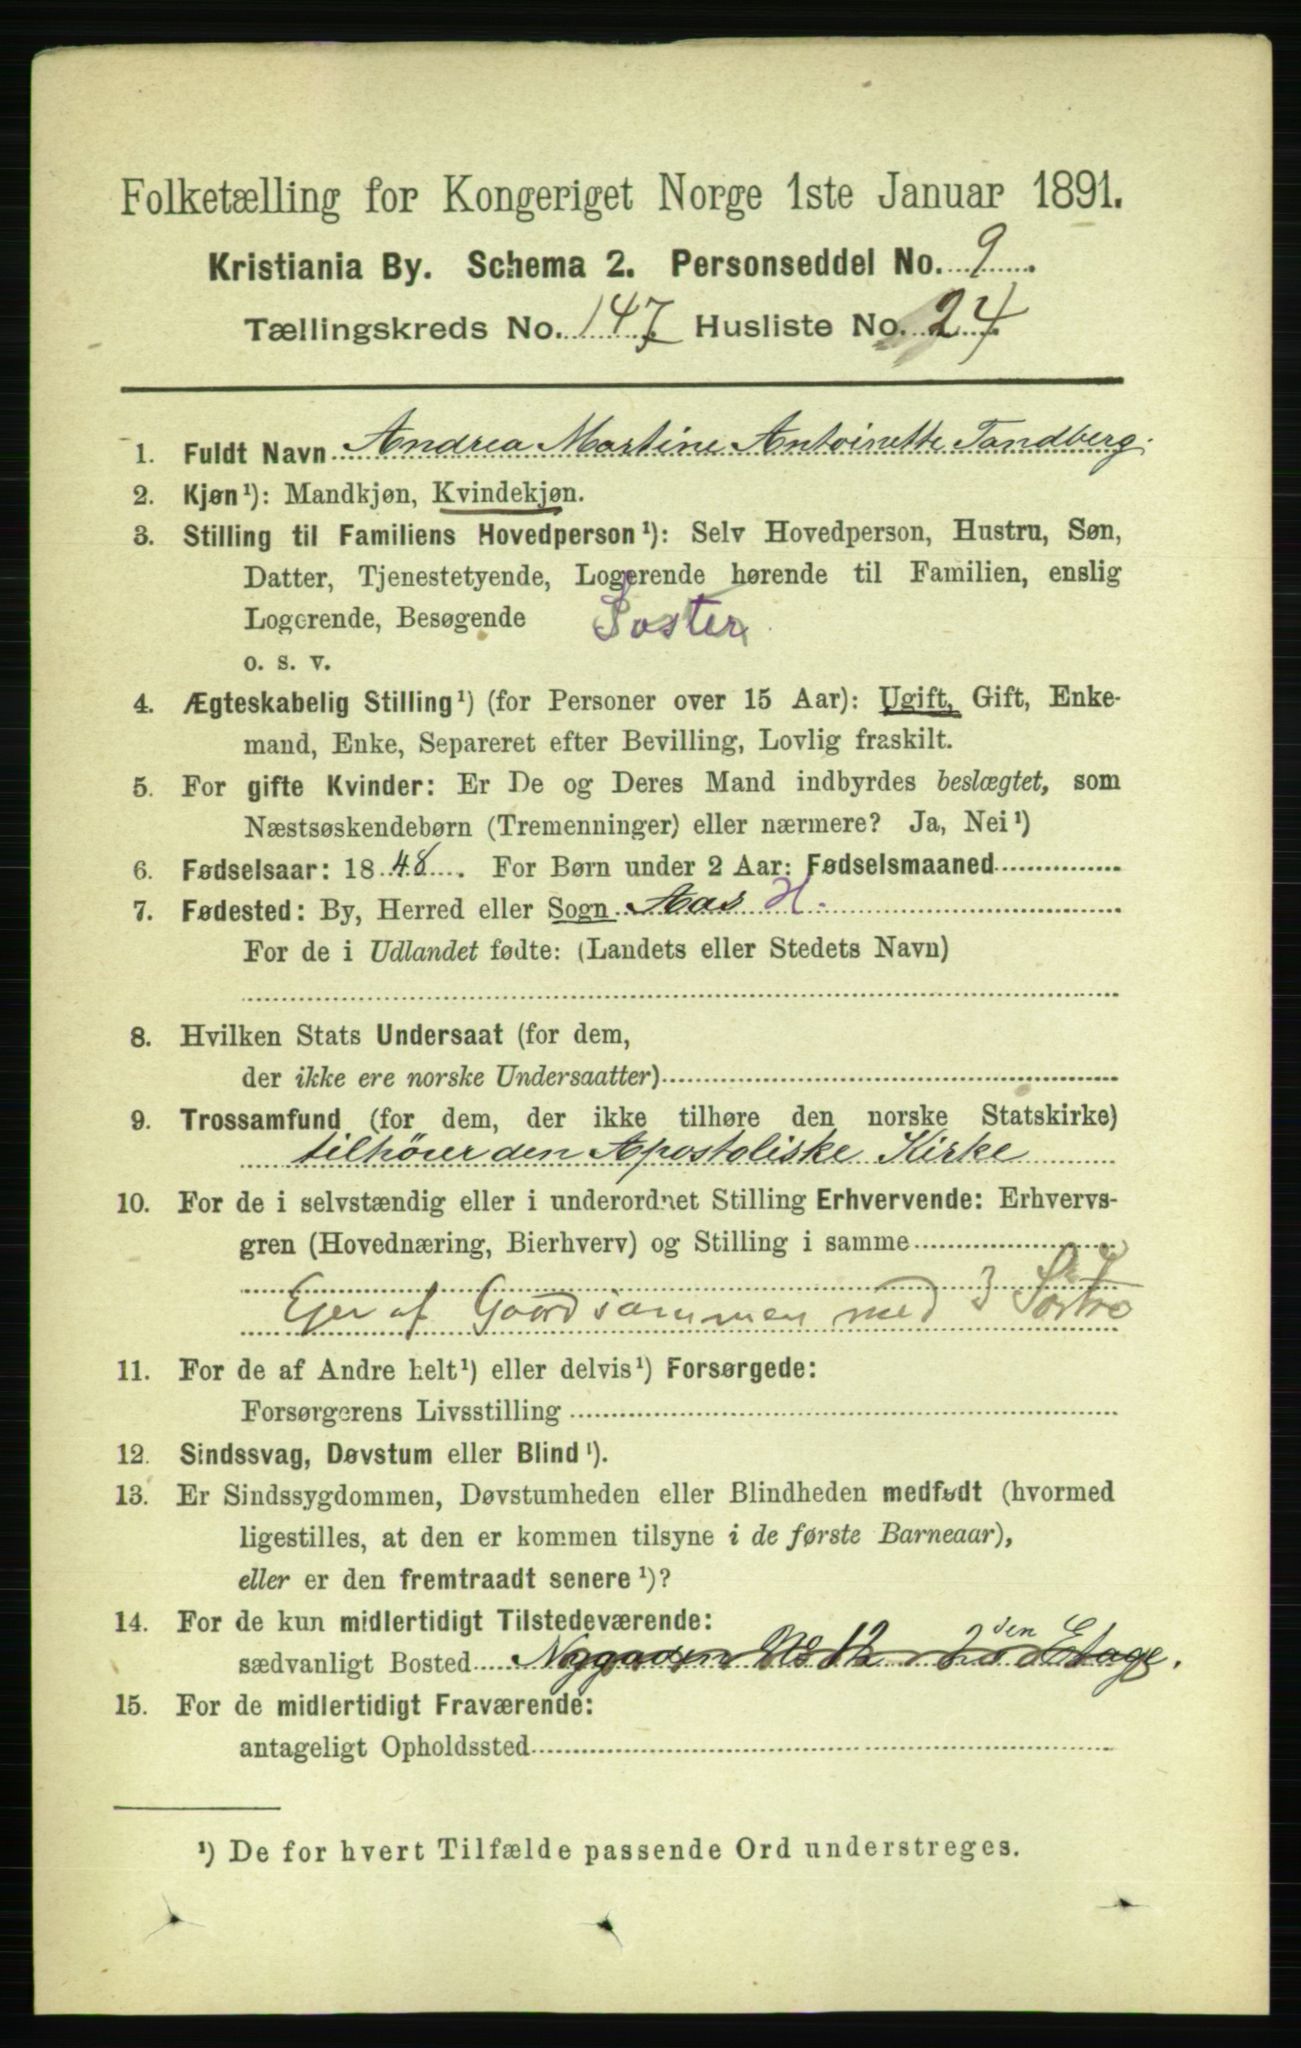 Folketælling for Kongeriget Norge 1ste Januar 1891.
Kristiania By. Schema 2. Personseddel No. 9
Tællingskreds No. 147 Husliste No. 24
1. Fuldt Navn Andrea Martine Antoinette Tandberg.
2. Kjøn¹): Mandkjøn, Kvindekjøn.
3. Stilling til Familiens Hovedperson¹): Selv Hovedperson, Hustru, Søn,
Datter, Tjenestetyende, Logerende hørende til Familien, enslig
Logerende, Besøgende Søster
o. s. v.
4. Ægteskabelig Stilling¹) (for Personer over 15 Aar): Ugift, Gift, Enke-
mand, Enke, Separeret efter Bevilling, Lovlig fraskilt.
5. For gifte Kvinder: Er De og Deres Mand indbyrdes beslægtet, som
Næstsøskendebørn (Tremenninger) eller nærmere? Ja, Nei¹)
6. Fødselsaar: 1848. For Børn under 2 Aar: Fødselsmaaned
7. Fødested: By, Herred eller Sogn Aas H.
For de i Udlandet fødte: (Landets eller Stedets Navn)
8. Hvilken Stats Undersaat (for dem,
der ikke ere norske Undersaatter)
9. Trossamfund (for dem, der ikke tilhøre den norske Statskirke)
tilhörer den Apostoliske Kirke
10. For de i selvstændig eller i underordnet Stilling Erhvervende: Erhvervs-
gren (Hovednæring, Bierhverv) og Stilling i samme
Ejer af Gaard sammen med 3 Søstre
11. For de af Andre helt¹) eller delvis¹) Forsørgede:
Forsørgerens Livsstilling
12. Sindssvag, Døvstum eller Blind¹).
13. Er Sindssygdommen, Døvstumheden eller Blindheden medfødt (hvormed
ligestilles, at den er kommen tilsyne i de første Barneaar),
eller er den fremtraadt senere¹)?
14. For de kun midlertidigt Tilstedeværende:
sædvanligt Bosted Nygaden No 12 2den Etage.
15. For de midlertidigt Fraværende:
antageligt Opholdssted
¹) De for hvert Tilfælde passende Ord understreges.